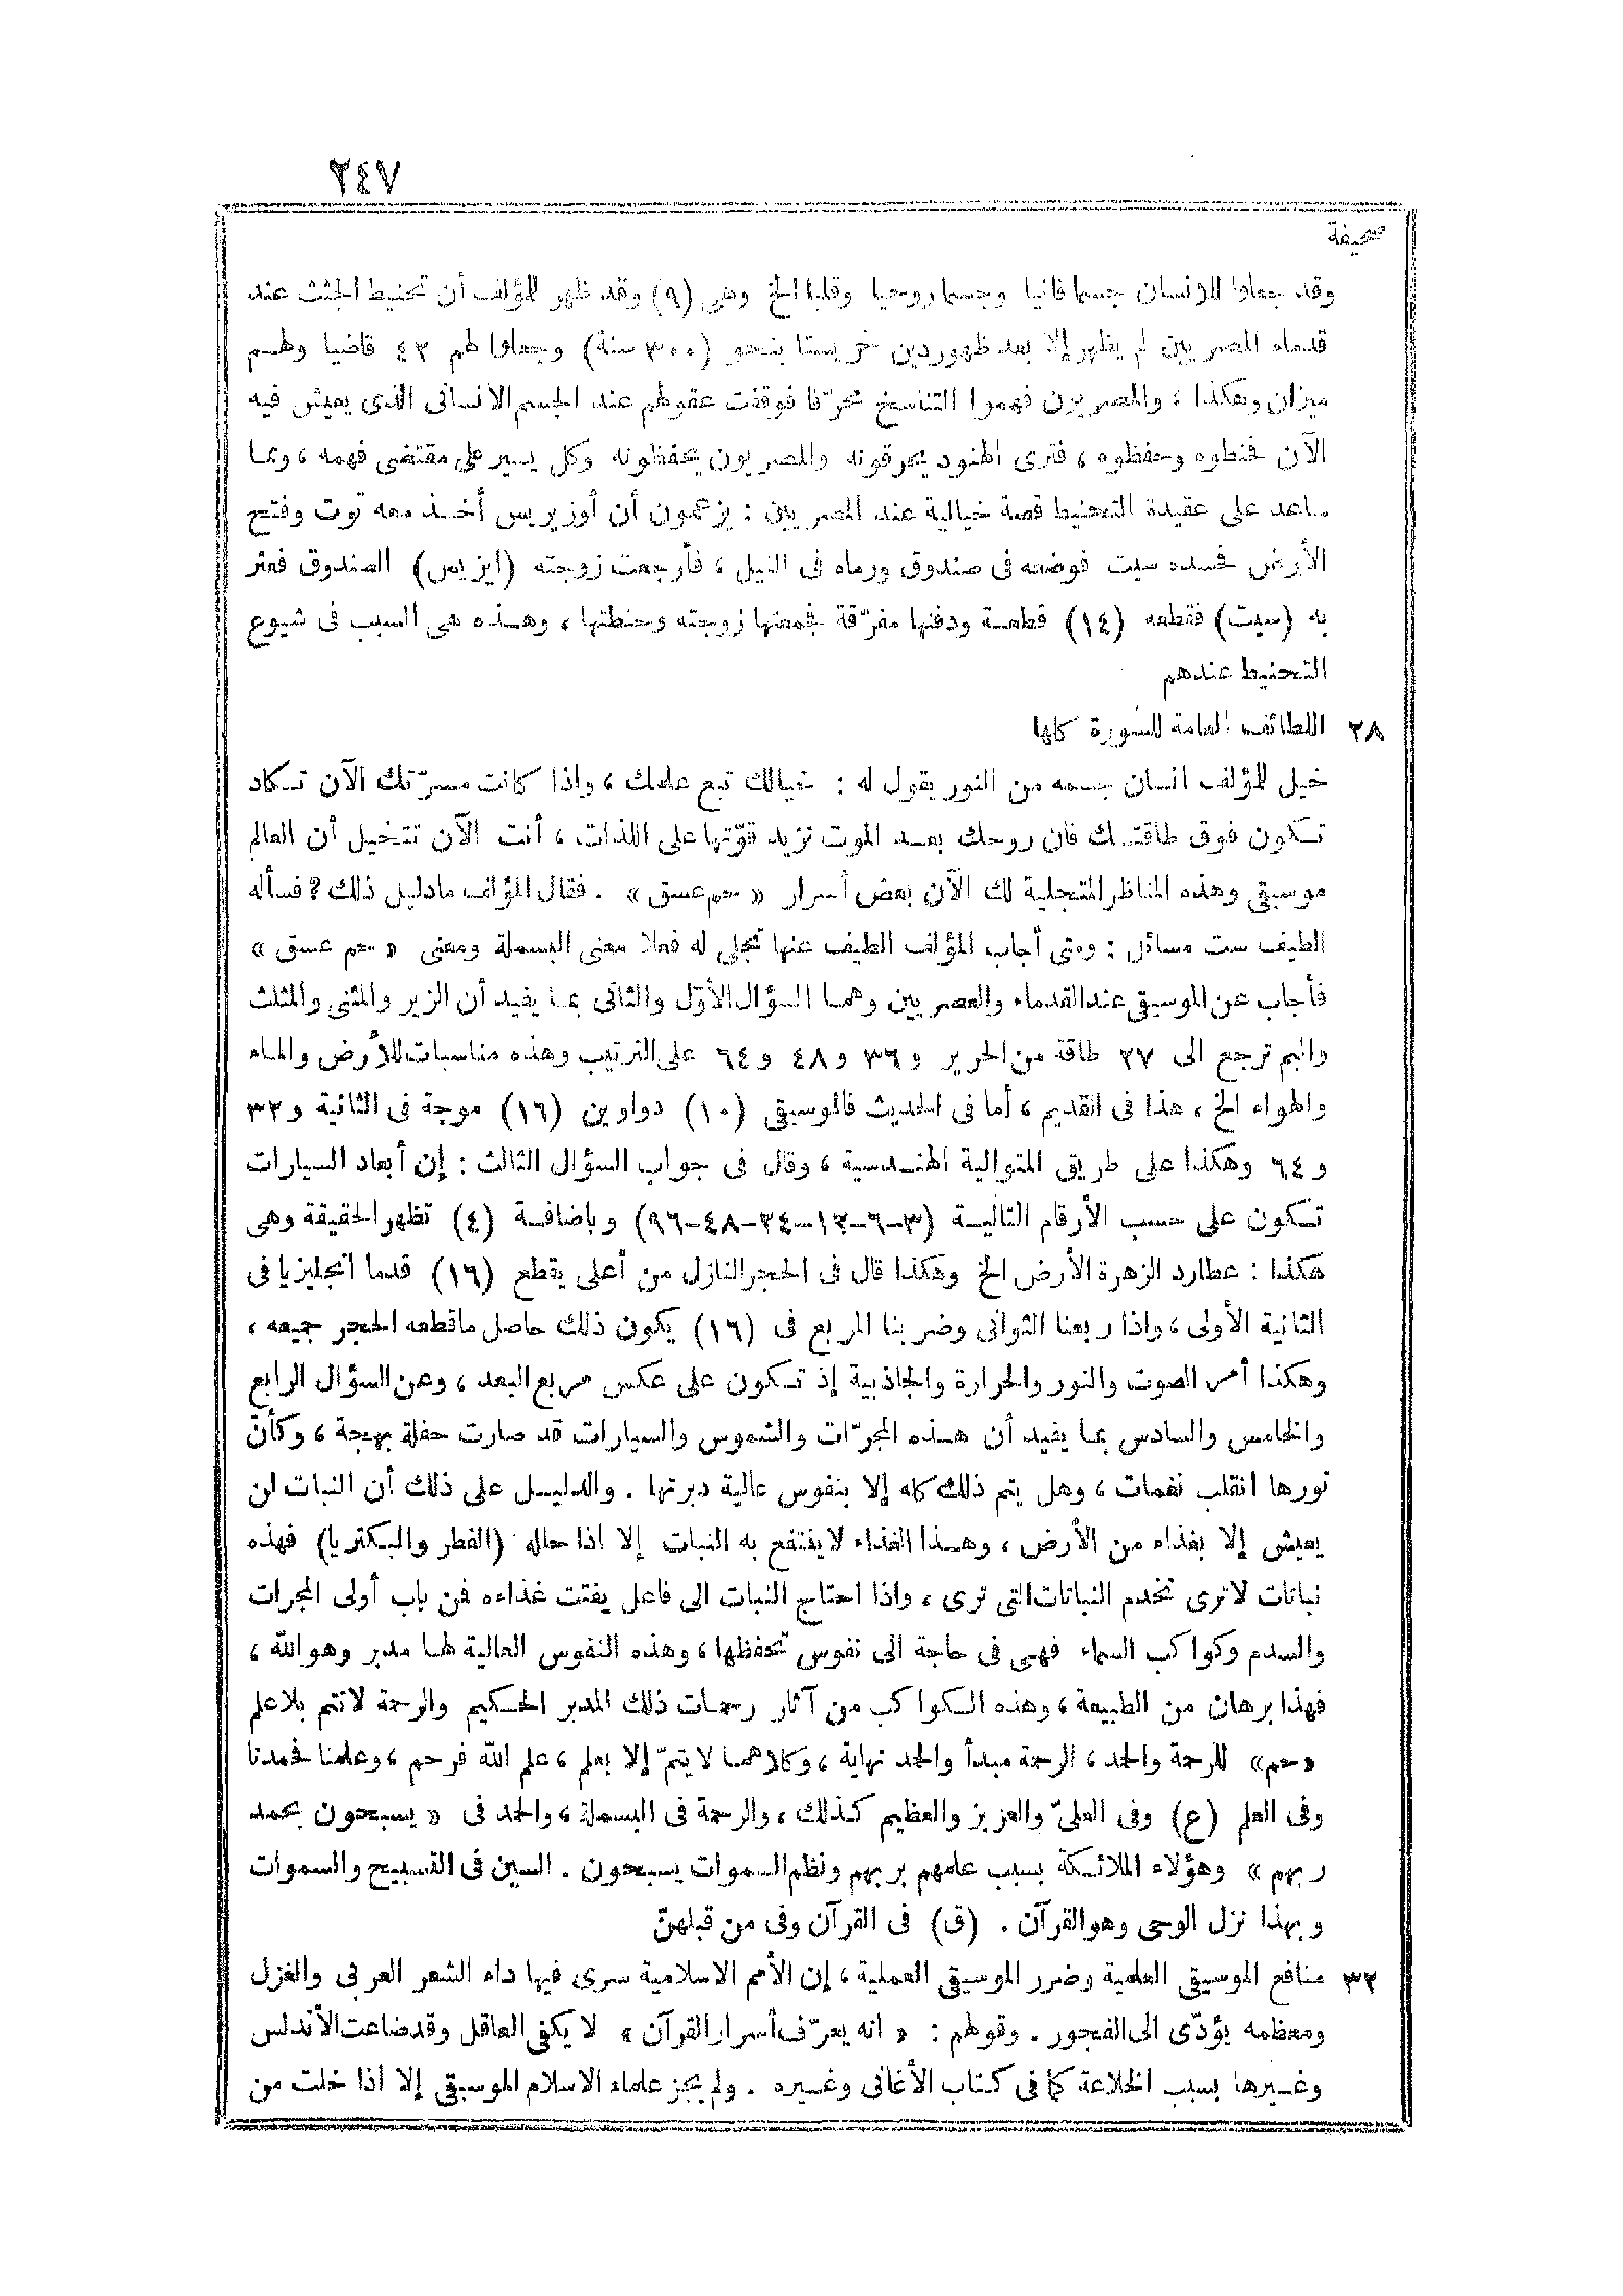 ٢٤٧
صحيفة
وقد جعلوا للانسان جسما فانيا وجسما روحيا وقلبا الخ وهى (٩) وقد ظهر للمؤلف أن تحنيط الجثث عند
قدماء المصريين لم يظهر إلا بعد ظهور دين خريستا بنحو (٣٠٠ سنة) وجعلوا لهم ٤٢ قاضيا ولهم
ميزان وهكذا ، والمصريون فهموا التناسخ محرّفا فوقفت عقولهم عند الجسم الانسانى الذى يعيش فيه
الآن فحنطوه وحفظوه ، فترى الهنود يحرقونه والمصريون يحفظونه وكل يسير على مقتضى فهمه ، ومما
ساعد على عقيدة التحنيط قصة خيالية عند المصريين : يزعمون أن أوزيريس أخذ معه توت وفتح
الأرض فحسده سيت فوضعه فى صندوق ورماه فى النيل ، فأرجعت زوجته (ايزيس) الصندوق فعثر
به (سيت) فقطعه (١٤) قطعة ودفنها مفرّقة فجمعتها زوجته وحنطتها ، وهذه هى السبب فى شيوع
التحنيط عندهم
٢٨ اللطائف العامة للسورة كلها
خيل للمؤلف انسان جسمه من النور يقول له : خيالك تبع علمك ، واذا كانت مسرّتك الآن تكاد
تكون فوق طاقتك فان روحك بعد الموت تزيد قوّتها على اللذات ، أنت الآن تتخيل أن العالم
موسيقى وهذه المناظر المتجلية لك الآن بعض أسرار « حم عسق » . فقال المؤلف مادليل ذلك ? فسأله
الطيف ست مسائل : ومتى أجاب المؤلف الطيف عنها تجلى له فعلا معنى البسملة ومعنى « حم عسق »
فأجاب عن الموسيقى عند القدماء والعصريين وهما السؤال الأوّل والثانى بما يفيد أن الزير والمثنى والمثلث
والبم ترجع الى ٢٧ طاقة من الحرير و ٣٦ و ٤٨ و ٦٤ على الترتيب وهذه مناسبات للأرض والماء
والهواء الخ ، هذا فى القديم ، أما فى الحديث فالموسيقى (١٠) دواوين (١٦) موجة فى الثانية و ٣٢
و ٦٤ وهكذا على طريق المتوالية الهندسية ، وقال فى جواب السؤال الثالث : إن أبعاد السيارات
تكون على حسب الأرقام التالية (٣-٦-١٢-٢٤-٤٨-٩٦) وباضافة (٤) تظهر الحقيقة وهى
هكذا : عطارد الزهرة الأرض الخ وهكذا قال فى الحجر النازل من أعلى يقطع (١٦) قدما انجليزيا فى
الثانية الأولى ، واذا ربعنا الثوانى وضربنا المربع فى (١٦) يكون ذلك حاصل ماقطعه الحجر جميعه ،
وهكذا أمر الصوت والنور والحرارة والجاذبية إذ تكون على عكس مربع البعد ، وعن السؤال الرابع
والخامس والسادس بما يفيد أن هذه المجرّات والشموس والسيارات قد صارت حفلة بهجة ، وكأنّ
نورها انقلب نغمات ، وهل يتم ذلك كله إلا بنفوس عالية دبرتها . والدليل على ذلك أن النبات لن
يعيش إلا بغذاء من الأرض ، وهذا الغذاء لا ينتفع به النبات إلا اذا حلله (الفطر والبكتريا) فهذه
نباتات لاترى تخدم النباتات التى ترى ، واذا احتاج النبات الى فاعل يفتت غذاءه فمن باب أولى المجرات
والسدم وكواكب السماء فهى فى حاجة الى نفوس تحفظها ، وهذه النفوس العالية لها مدبر وهو الله ،
فهذا برهان من الطبيعة ، وهذه الكواكب من آثار رحمات ذلك المدبر الحكيم والرحمة لاتتم بلاعلم
«حم» للرحمة والحمد ، الرحمة مبدأ والحمد نهاية ، وكلاهما لايتمّ إلا بعلم ، علم الله فرحم ، وعلمنا فحمدنا
وفى العلم (ع) وفى العلىّ والعزيز والعظيم كذلك ، والرحمة فى البسملة ، والحمد فى « يسبحون بحمد
ربهم » وهؤلاء الملائكة بسبب علمهم بربهم ونظم السموات يسبحون . السين فى التسبيح والسموات
وبهذا نزل الوحى وهو القرآن . (ق) فى القرآن وفى من قبلهنّ
٣٢ منافع الموسيقى العلمية وضرر الموسيقى العملية ، إن الأمم الاسلامية سرى فيها داء الشعر العربى والغزل
ومعظمه يؤدّى الى الفجور . وقولهم : « انه يعرّف أسرار القرآن » لا يكفى العاقل وقد ضاعت الأندلس
وغيرها بسبب الخلاعة كما فى كتاب الأغانى وغيره . ولم يجز علماء الاسلام الموسيقى إلا اذا خلت من